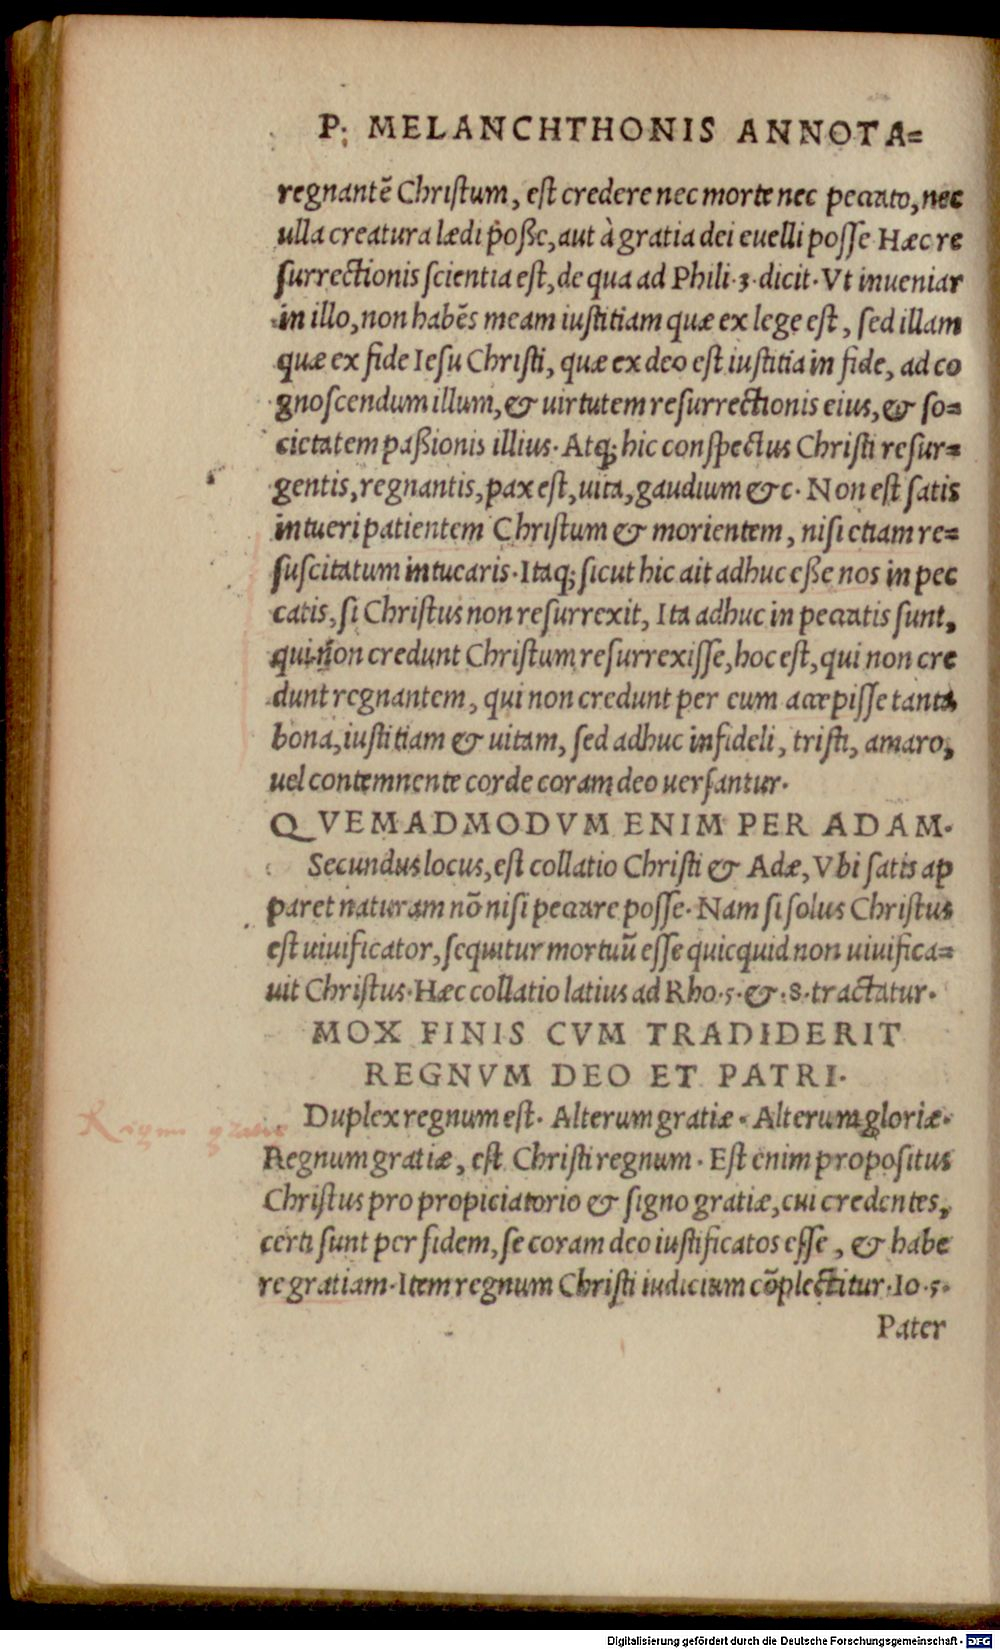 P. MELANCHTHONIS ANNOTA=
regnantē Christum, est credere nec morte nec peccato, nec
ulla creatura lædi poße, aut à gratia dei euelli posse Hæc re
surrectionis scientia est, de qua ad Phili.3.dicit.Vt inueniar
in illo, non habēs meam iustitiam quæ ex lege est, sed illam
quæ ex fide Iesu Christi, quæ ex deo est iustitia in fide, ad co
gnoscendum illum, & uirtutem resurrectionis eius, & so=
cietatem paßionis illius. Atq; hic conspectus Christi resur=
gentis, regnantis, pax est, uita, gaudium &c. Non est satis
intueri patientem Christum & morientem, nisi etiam re=
suscitatum intuearis. Itaq; sicut hic ait adhuc eße nos in pec
catis, si Christus non resurrexit, Ita adhuc in peccatis sunt,
qui non credunt Christum resurrexisse, hoc est, qui non cre
dunt regnantem, qui non credunt per eum accepisse tanta
bona, iustitiam & uitam, sed adhuc infideli, tristi, amaro,
uel contemnente corde coram deo uersantur.
QVEMADMODVM ENIM PER ADAM.
Secundus locus, est collatio Christi & Adæ, Vbi satis ap
paret naturam nō nisi peccare posse. Nam si solus Christus
est uiuificator, sequitur mortuū esse quicquid non uiuifica=
uit Christus. Hæc collatio latius ad Rho.5.&.8.tractatur.
MOX FINIS CVM TRADIDERIT
REGNVM DEO ET PATRI.
Duplex regnum est. Alterum gratiæ. Alterum gloriæ.
Regnum gratiæ, est Christi regnum. Est enim propositus
Christus pro propiciatorio & signo gratiæ, cui credentes,
certi sunt per fidem, se coram deo iustificatos esse, & habe
re gratiam. Item regnum Christi iudicium cōplectitur. Io.5.
Pater
Regnu gratiæ
Digitalisierung gefördert durch die Deutsche Forschungsgemeinschaft - DFG